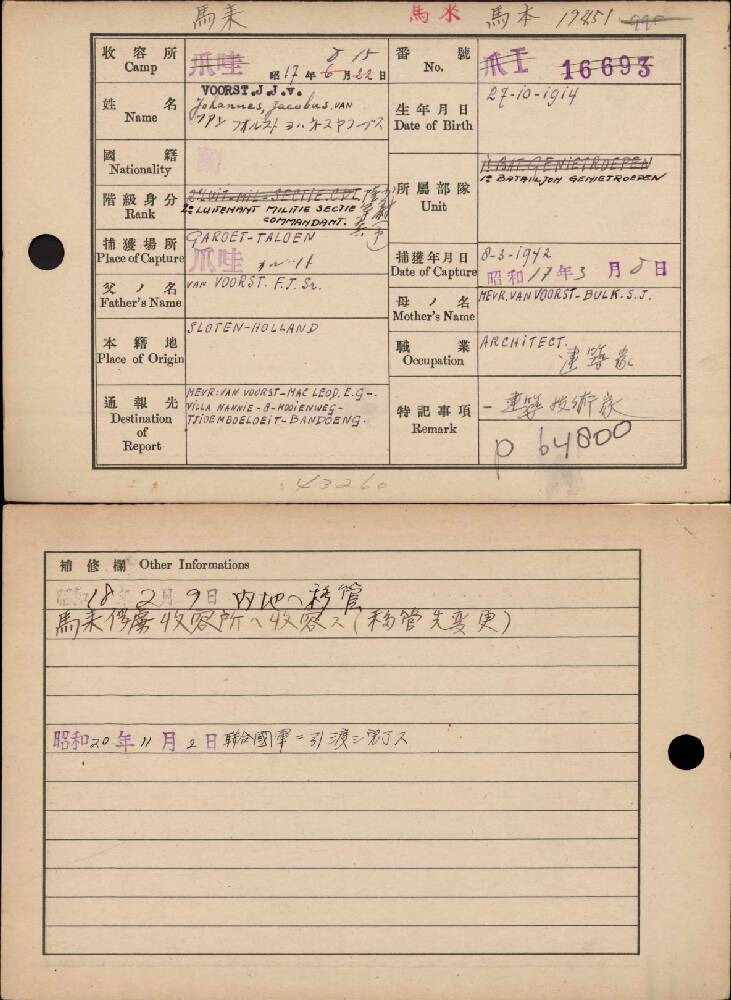 馬来 馬来 馬本 19451
收容所 Camp 爪哇 昭17年6月22日 8 15
番號 No. 爪I 16693
姓名 Name VOORST.J.J.v.
Johannes, Jacobus, VAN
ファン フォルスト ヨハネス ヤコーブス
生年月日 Date of Birth 27-10-1914
國籍 Nationality 蘭
階級身分 Rank
2e LUITENANT MILITIE SECTIE
COMMANDANT.
所屬部隊 Unit 1e BAT GENIETROEPEN
1e BATAILJON GENIETROEPEN
捕獲場所 Place of Capture GAROET-TALOEN
爪哇
捕獲年月日 Date of Capture 8-3-1942
昭和17年3月8日
父ノ名 Father's Name VAN VOORST. F.J. Sr.
母ノ名 Mother's Name MEVR. VAN VOORST-BULK. S.J.
本籍地 Place of Origin SLOTEN-HOLLAND
職業 Occupation ARCHITECT.
建築家
通報先 Destination of Report MEVR. VAN VOORST-MAC LEOD. E.G-.
VILLA NANNIE-8-KOOIENWEG-
TJIOEMBOELOEIT-BANDOENG.
特記事項 Remark - 建築技術家
P 64800
43260
補修欄 Other Informations
昭和18年2月9日 内地へ移管
馬来俘虜收容所へ收容ス(移管先変更)
昭和20年11月2日 聯合國軍ニ引渡シ完了ス